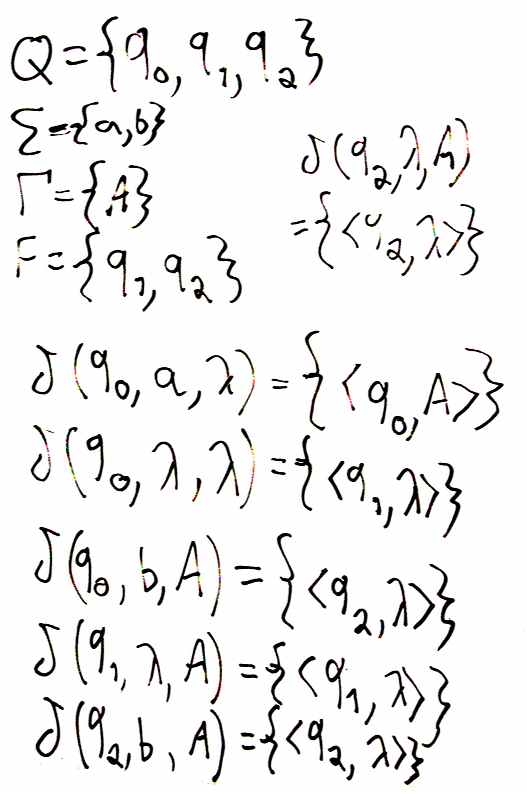 Q={q₀, q₁, q₂}
Σ={a,b}
Γ={A}
F={q₁, q₂}
δ(q₂,λ,A)
={<q₂,λ>}
δ(q₀, a, λ) = {<q₀,A>}
δ(q₀, λ, λ) = {<q₁,λ>}
δ(q₀, b, A) = {<q₂,λ>}
δ(q₁, λ, A) = {<q₁, λ>}
δ(q₂, b, A) = {<q₂, λ>}